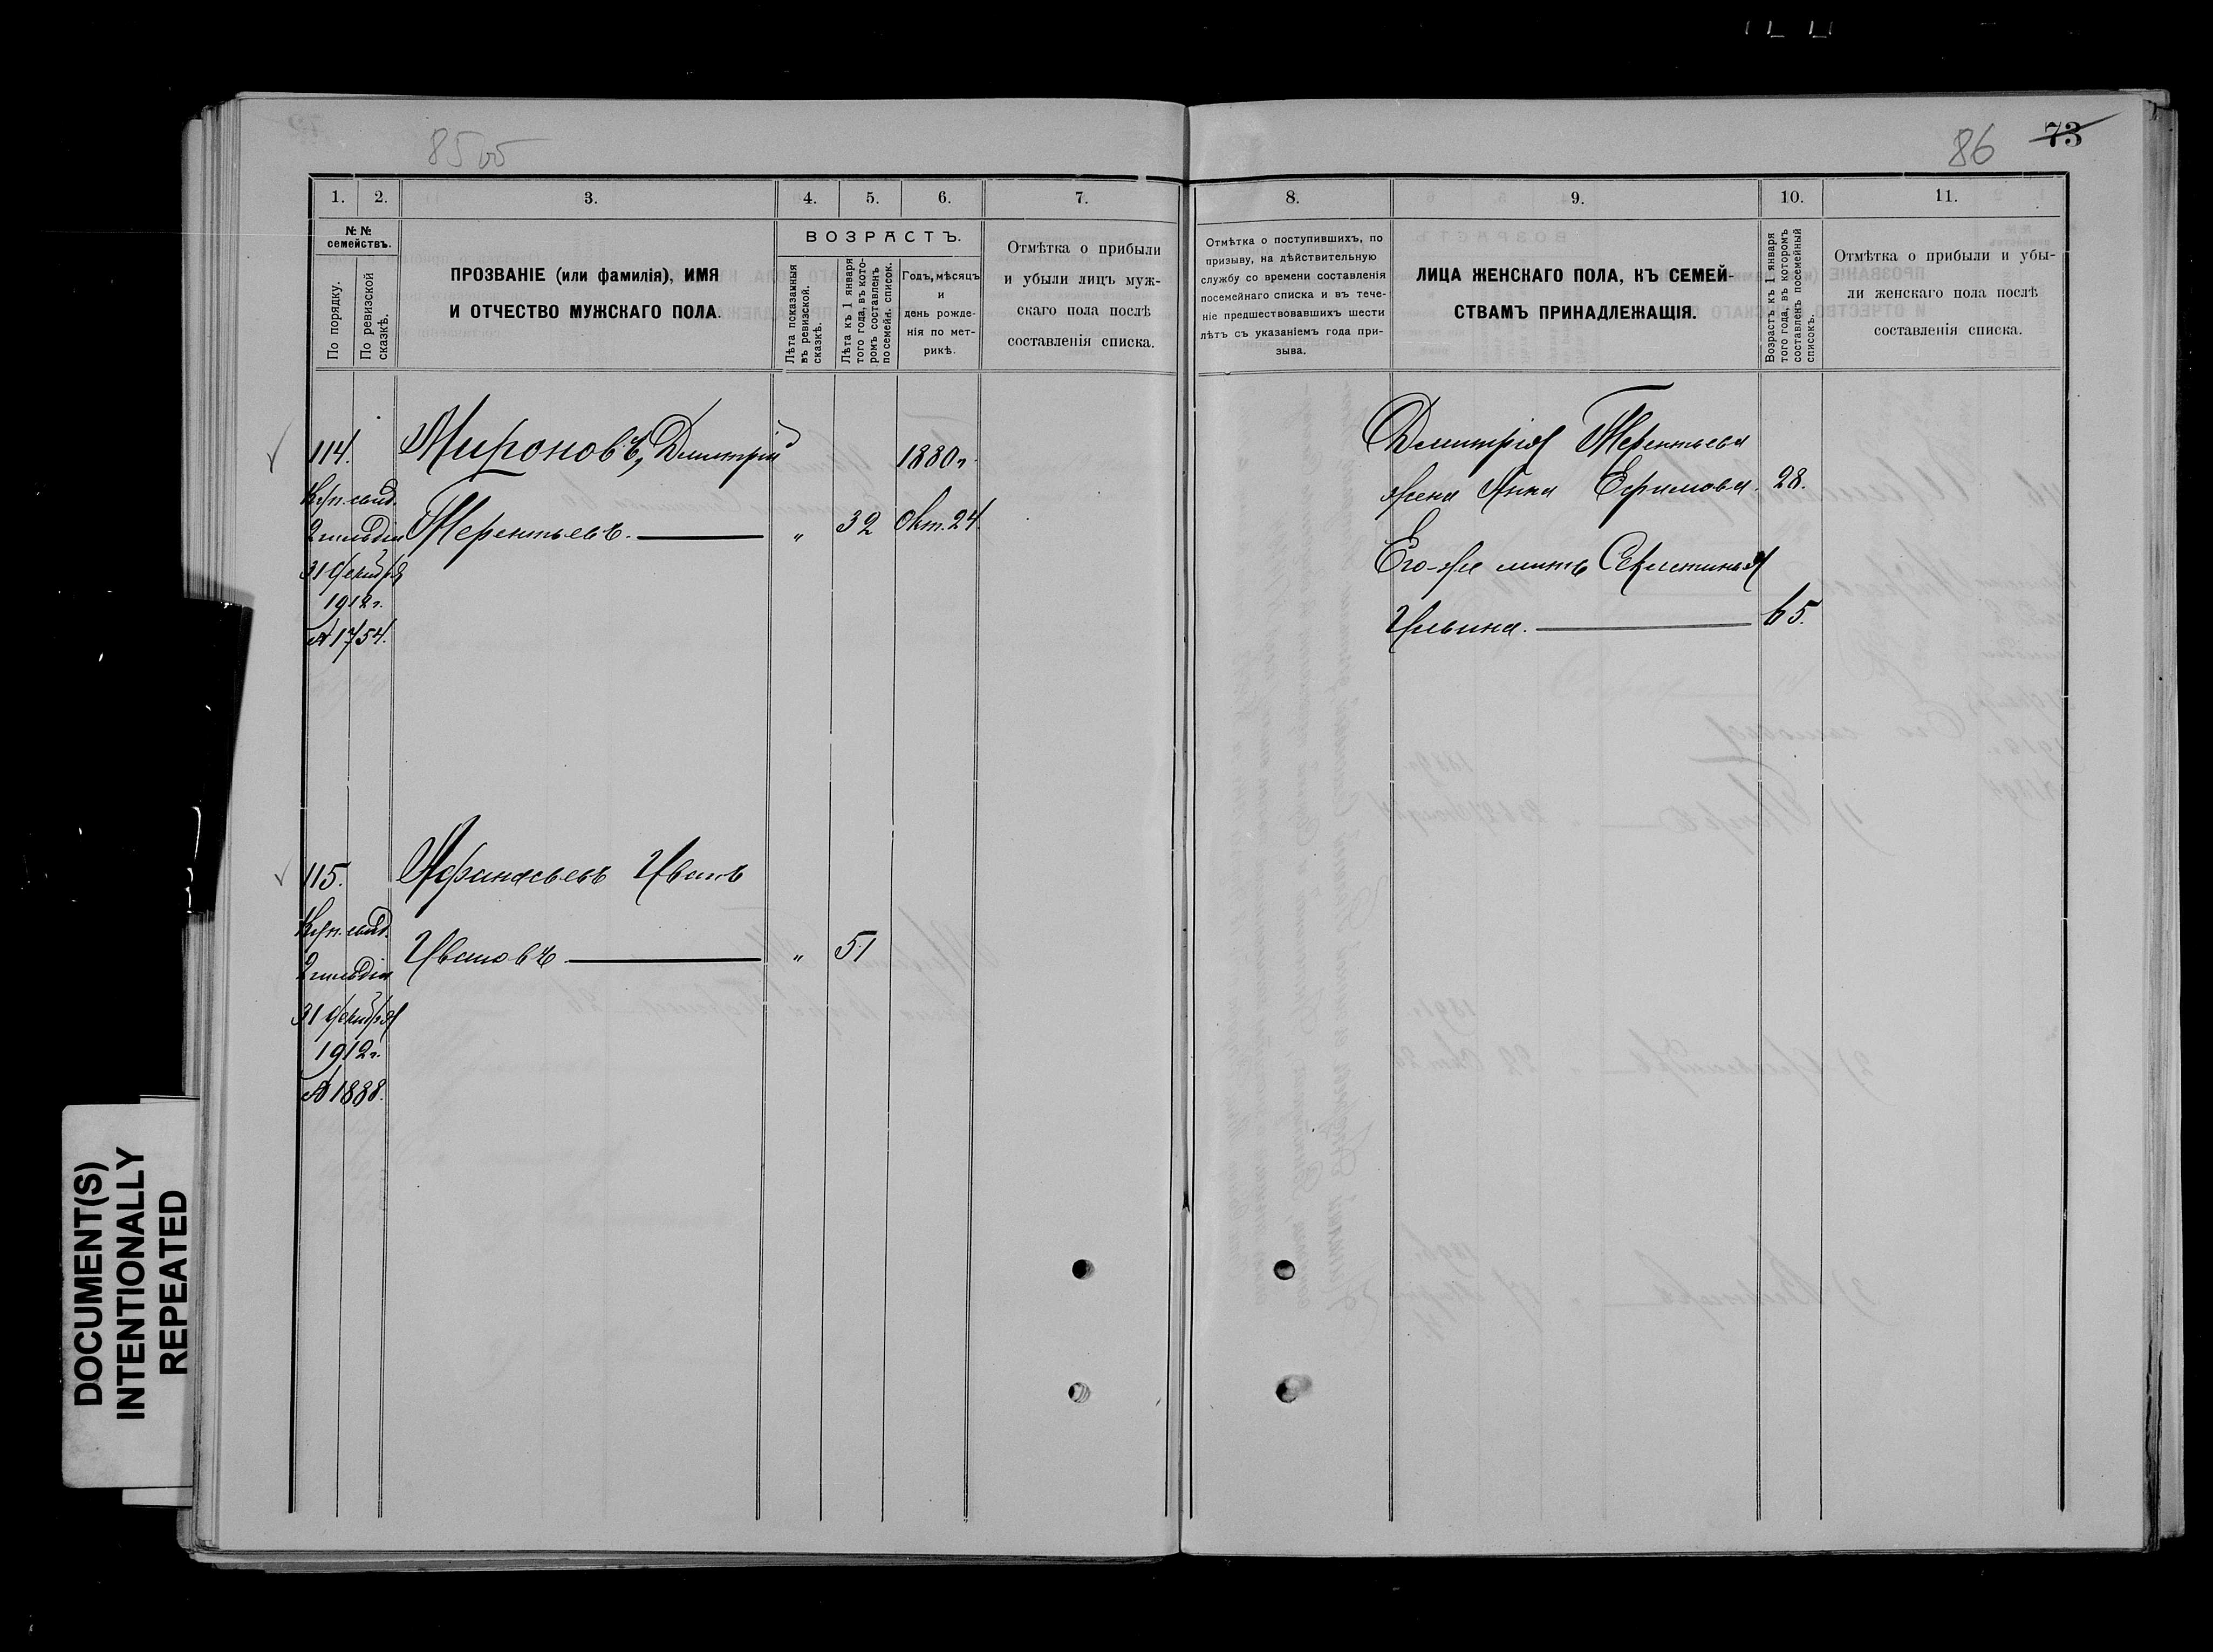 85 об
86 73
1. 2. 3. 4. 5. 6. 7.
№ № семействъ.
По порядку.
По ревизской сказкѣ.
ПРОЗВАНІЕ (или фамилія), ИМЯ
И ОТЧЕСТВО МУЖСКАГО ПОЛА.
ВОЗРАСТЪ.
Лѣта показанныя
въ ревизской.
сказкѣ.
Лѣта къ 1 января
того года, въ кото-
ромъ составленъ
посемейн. список.
Годъ, мѣсяцъ
и
день рожде-
нія по мет-
рикѣ.
Отмѣтка о прибыли
и убыли лицъ муж-
скаго пола послѣ
составленія списка.
8. 9. 10. 11.
Отмѣтка о поступившихъ, по
призыву, на дѣйствительную
службу со времени составленія
посемейнаго списка и въ тече-
ніе предшествовавшихъ шести
лѣтъ съ указаніемъ года при-
зыва.
ЛИЦА ЖЕНСКАГО ПОЛА, КЪ СЕМЕЙ-
СТВАМЪ ПРИНАДЛЕЖАЩІЯ.
Возрастъ къ 1 января
того года, въ которомъ
составленъ посемейный
списокъ.
Отмѣтка о прибыли и убы-
ли женскаго пола послѣ
составленія списка.
114. Мироновъ, Дмитрій 1880 г.
Куп. свид.
2 гильдіи Терентьевъ. — „ 32 Окт. 24
31 декабря
1912 г.
№ 1754.
Дмитрія Терентьева
жена Анна Ефимова. 28.
Его-же мать Секлетинья
Ильина. — 65.
115. Афанасьевъ Иванъ
Куп. свид.
2 гильдіи Ивановъ — „ 51
31 декабря
1912 г.
№ 1888.
DOCUMENT(S)
INTENTIONALLY
REPEATED